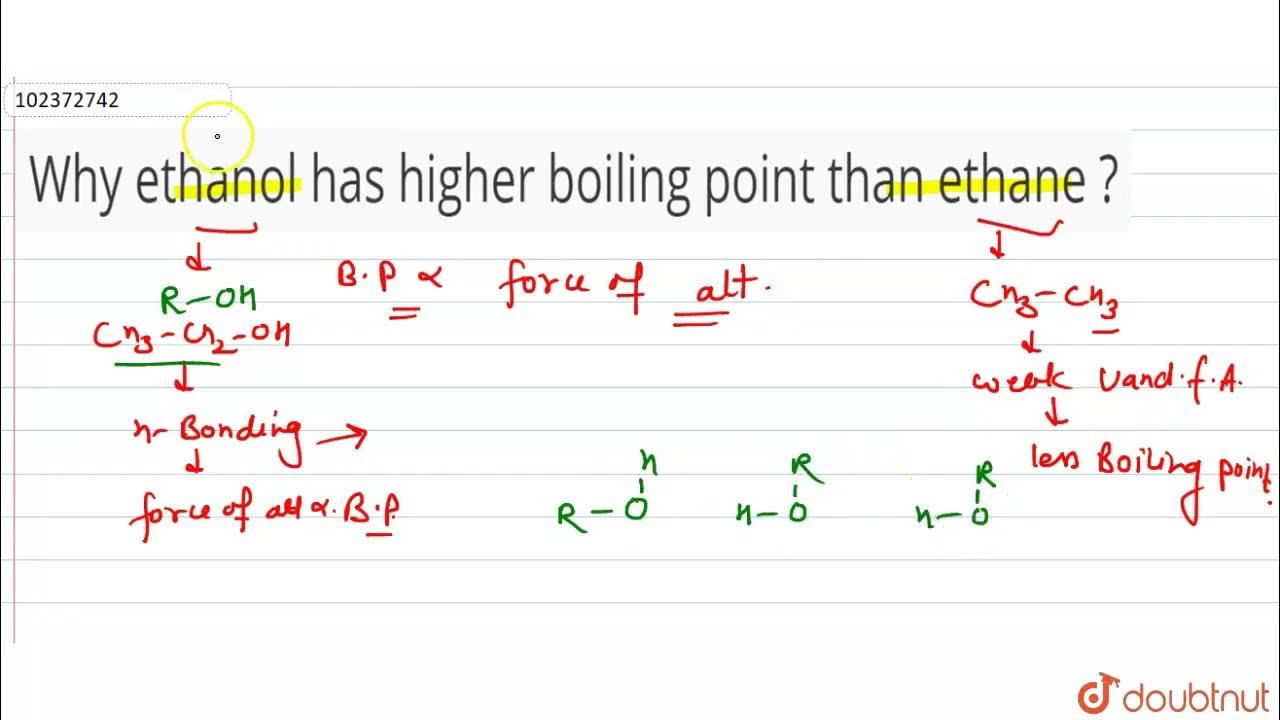 102372742
Why ethanol has higher boiling point than ethane ?
R-OH
CH3-CH2-OH
H-Bonding →
force of att ∝ B.P.
B.P ∝ force of att.
CH3-CH3
weak Vand.f.A.
less Boiling point.
H
R-O
R
H-O
R
H-O
doubtnut